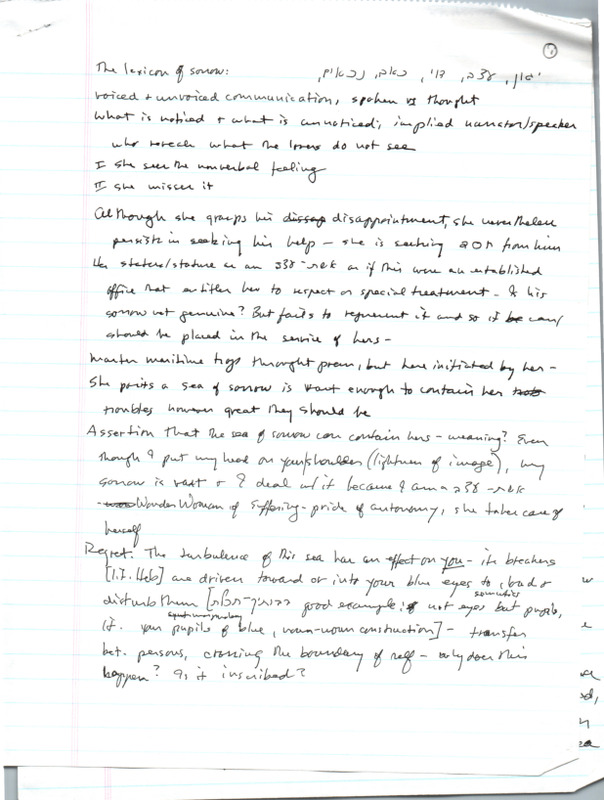 The lexicon of sorrow: יגון, עצב, דוי, כאב, נכאים,
voiced + unvoiced communication, spoken vs thought
What is noticed + what is unnoticed; implied narrator/speaker
who reveals what the lovers do not see
I she sees the nonverbal feeling
II she misses it
Although she grasps his disappointment, she nevertheless
persists in seeking his help – she is seeking from him
Her status/stature as an אשת-עצב as if this were an established
office that entitles her to respect or special treatment – Is his
sorrow not genuine? But fails to represent it and so it be can/
should be placed in the service of hers –
Master maritime trope throught poem, but here initiated by her –
She posits a sea of sorrow is vast enough to contain her
troubles however great they should be
Assertion that the sea of sorrow can contain hers – meaning? Even
though I put my head on your shoulder (lightness of image), my
sorrow is vast + I deal w/ it because I am a אשת-עצב
Wonder Woman of Suffering – pride of autonomy, she takes care of
herself
Regret. The turbulence of this sea has an effect on you – its breakers
[I.I. Heb] are driven toward or into your blue eyes to cloud +
disturb them [ good example of semantics not eyes but pupils,
lit. your pupils of blue, noun-noun construction] – transfer
bet. persons, crossing the boundary of self – why does this
happen? Is it inscribed?